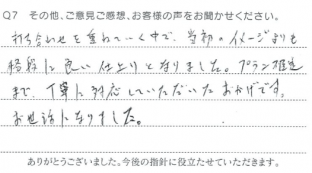 Q7 その他、ご意見ご感想、お客様の声をお聞かせください。
打ち合わせを重ねていく中で、当初のイメージよりも
格段に良い仕上りとなりました。プラン推進
まで、丁寧に対応していただいたおかげです。
お世話になりました。
ありがとうございました。今後の指針に役立たせていただきます。